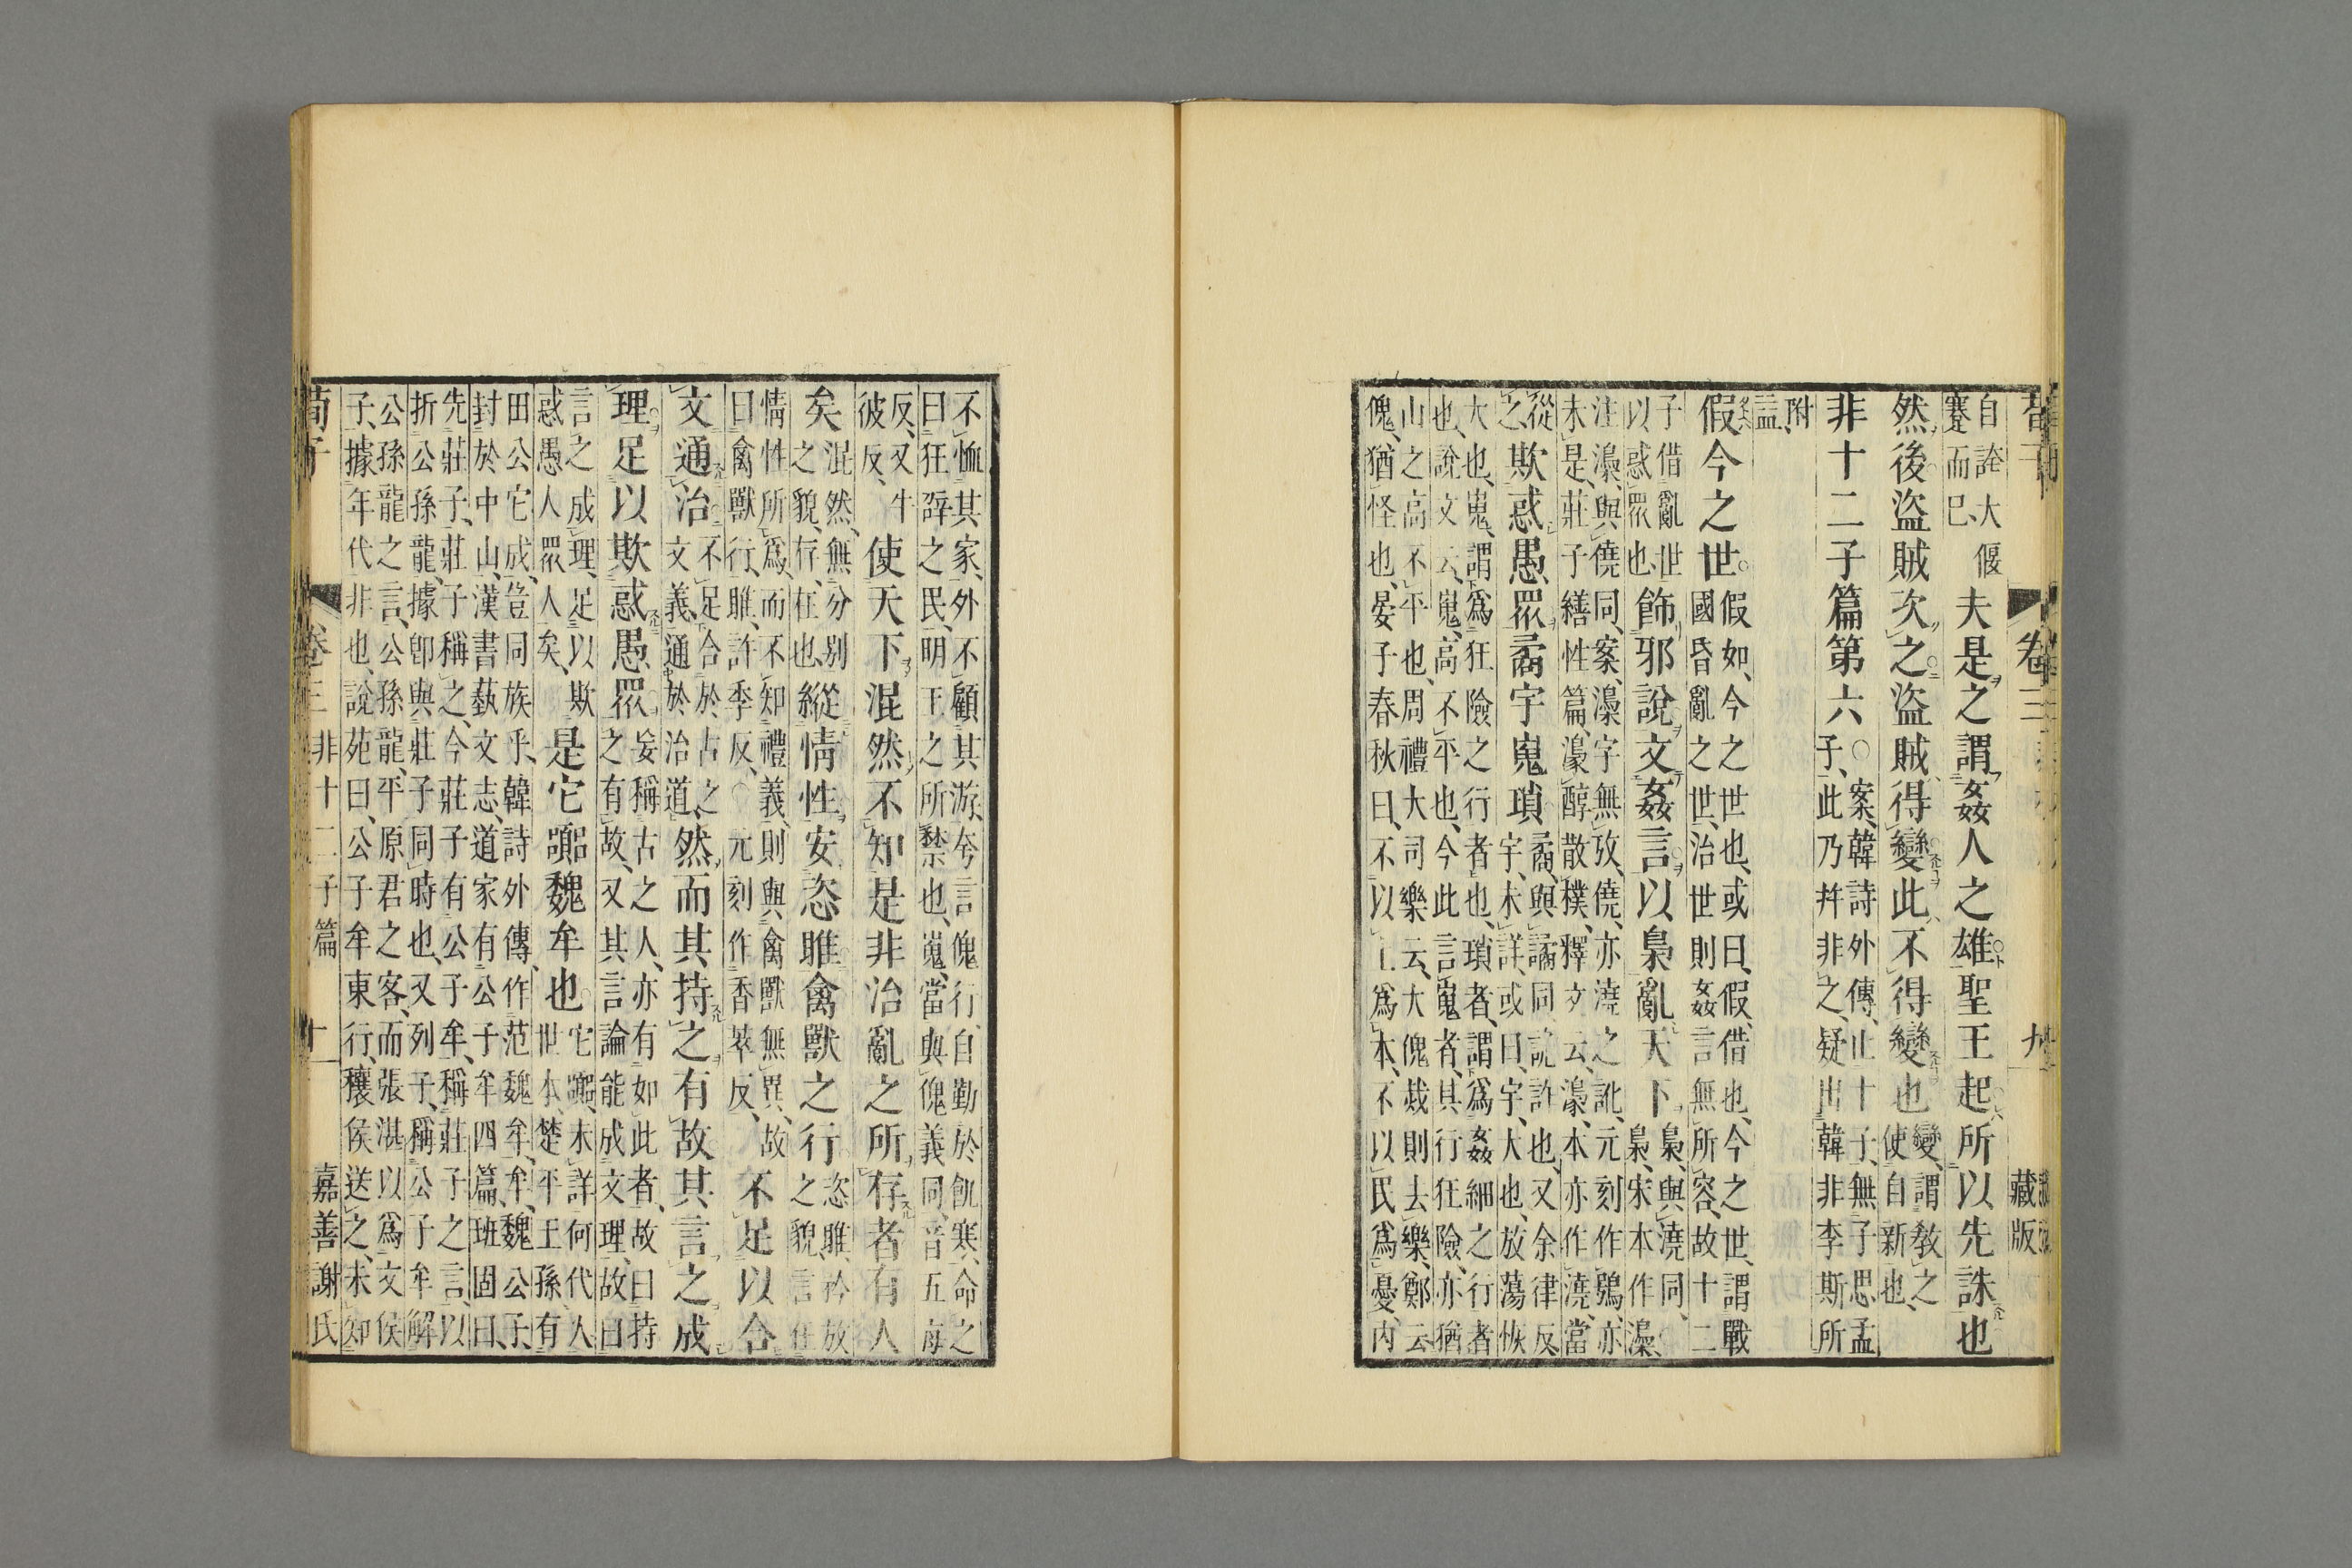 荀子
卷三
九
藏版
自誇大偃
蹇而已、
夫是之謂姦人之雄聖王起所以先誅也
然後盜賊次之盜賊得變此不得變也
變、謂教之
使自新也、
非十二子篇第六○
案、韓詩外傳、止十子、無子思孟
子、此乃幷非之、疑出韓非李斯所
附
益、
假今之世
假如、今之世也、或曰、假、借也、今之世、謂戰
國昏亂之世、治世則姦言無所容、故十二
子借亂世
以惑衆也、
飾邪說文姦言以梟亂天下
梟、與澆同、
梟、宋本作㵸、
注㵸、與僥同、案、㵸字無攷、僥、亦澆之訛、元刻作鴞、亦
未是、莊子繕性篇、濠醇散樸、釋文云、濠、本亦作澆、當
從
之、
欺惑愚衆矞宇嵬瑣
矞、與譎同、詭詐也、又余律反、
宇、未詳、或曰、宇、大也、放蕩恢
大也、嵬、謂爲狂險之行者也、瑣者、謂爲姦細之行者
也、說文云、嵬、高不平也、今此言嵬者、其行狂險、亦猶
山之高不平也、周禮大司樂云、大傀烖則去樂、鄭云
傀、猶怪也、晏子春秋曰、不以上爲本、不以民爲憂、內
不恤其家、外不顧其游、夸言傀行、自勤於飢寒、命之
曰狂辟之民、明王之所禁也、嵬、當與傀義同、音五每
反、又牛
彼反、
使天下混然不知是非治亂之所存者有人
矣
混然、無分別
之貌、存、在也、
縱情性安恣睢禽獸之行
恣睢、矜放
之貌、言任
情性所爲、而不知禮義、則與禽獸無異、故
曰禽獸行、睢、許季反、○元刻作香萃反、
不足以合
文通治
不足合於古之
文義、通於治道、
然而其持之有故其言之成
理足以欺惑愚衆
妄稱古之人、亦有如此者、故曰持
之有故、又其言論能成文理、故曰
言之成理、足以欺
惑愚人衆人矣、
是它嚻魏牟也
它嚻、未詳何代人
世本、楚平王孫、有
田公它成、豈同族乎、韓詩外傳、作范魏牟、牟、魏公子、
封於中山、漢書藝文志、道家有公子牟四篇、班固曰、
先莊子、莊子稱之、今莊子有公子牟、稱莊子之言、以
折公孫龍、據卽與莊子同時也、又列子、稱公子牟解
公孫龍之言、公孫龍、平原君之客、而張湛以爲文侯
子、據年代非也、說苑曰、公子牟東行、穰侯送之、未知
荀子
卷三
非十二子篇
十
嘉善謝氏